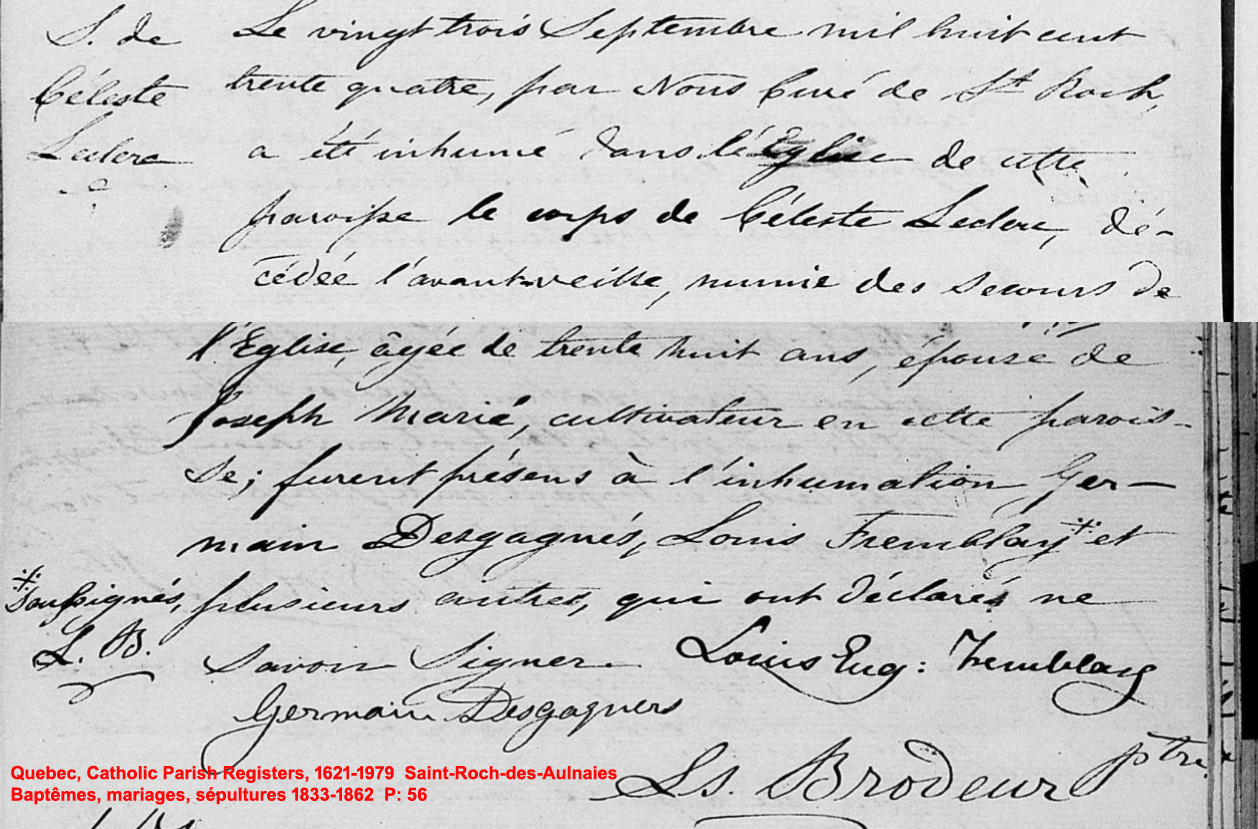 S. de
Céleste
Leclerc
Le vingt trois Septembre mil huit cent
trente quatre, par Nous Curé de St Roch,
a été inhumé dans l'Eglise de cette
paroisse le corps de Céleste Leclerc, dé-
cédée l'avant-veille, munie des secours de
l'Eglise, âgée de trente huit ans, épouse de
Joseph Marié, cultivateur en cette parois-
se; furent présens à l'inhumation Ger-
main Desgagnés, Louis Tremblay* et
plusieurs autres, qui ont déclarés ne
savoir signer.
* soussignés,
L. B.
Louis Eug: Tremblay
Germain Desgagners
Ls. Brodeur ptre.
Quebec, Catholic Parish Registers, 1621-1979 Saint-Roch-des-Aulnaies
Baptêmes, mariages, sépultures 1833-1862 P: 56